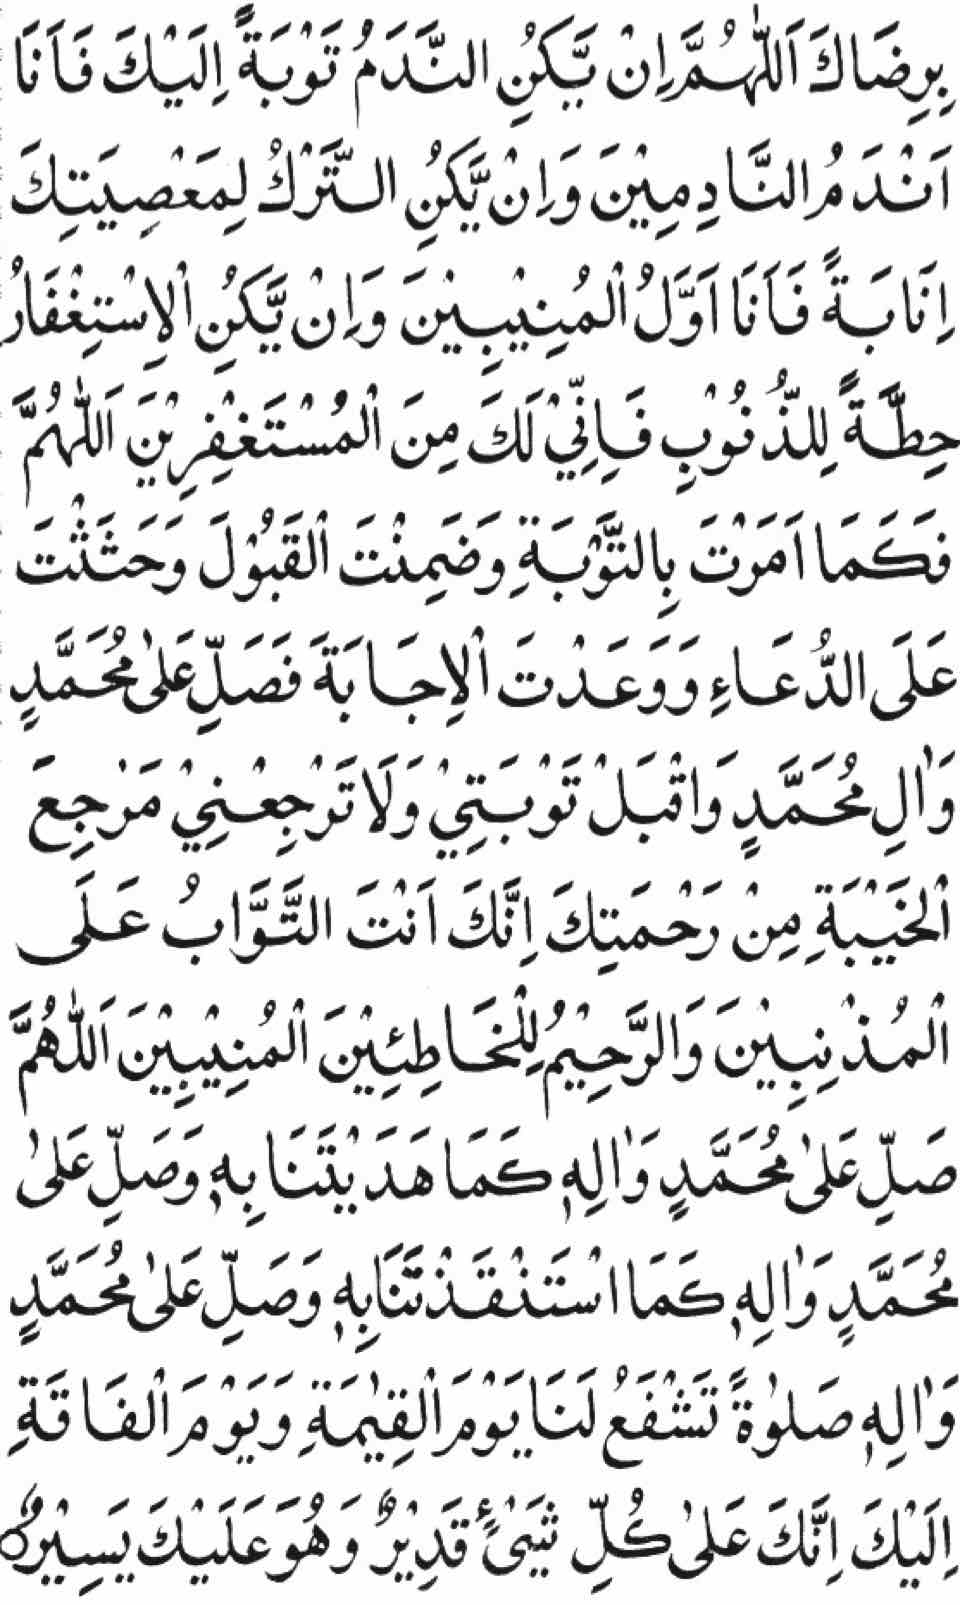 بِرِضَاكَ اَللّٰهُمَّ اِنْ يَّكُنِ النَّدَمُ تَوْبَةً اِلَيْكَ فَاَنَا
اَنْدَمُ النَّادِمِيْنَ وَاِنْ يَّكُنِ التَّرْكُ لِمَعْصِيَتِكَ
اِنَابَةً فَاَنَا اَوَّلُ الْمُنِيْبِيْنَ وَاِنْ يَّكُنِ الْاِسْتِغْفَارُ
حِطَّةً لِلذُّنُوْبِ فَاِنِّيْ لَكَ مِنَ الْمُسْتَغْفِرِيْنَ اَللّٰهُمَّ
فَكَمَا اَمَرْتَ بِالتَّوْبَةِ وَضَمِنْتَ الْقَبُوْلَ وَحَثَثْتَ
عَلَى الدُّعَاءِ وَوَعَدْتَ الْاِجَابَةَ فَصَلِّ عَلٰى مُحَمَّدٍ
وَاٰلِ مُحَمَّدٍ وَاقْبَلْ تَوْبَتِيْ وَلَا تَرْجِعْنِيْ مَرْجِعَ
الْخَيْبَةِ مِنْ رَحْمَتِكَ اِنَّكَ اَنْتَ التَّوَّابُ عَلَى
الْمُذْنِبِيْنَ وَالرَّحِيْمُ لِلْخَاطِئِيْنَ الْمُنِيْبِيْنَ اَللّٰهُمَّ
صَلِّ عَلٰى مُحَمَّدٍ وَاٰلِهٖ كَمَا هَدَيْتَنَا بِهٖ وَصَلِّ عَلٰى
مُحَمَّدٍ وَاٰلِهٖ كَمَا اسْتَنْقَذْتَنَا بِهٖ وَصَلِّ عَلٰى مُحَمَّدٍ
وَاٰلِهٖ صَلٰوةً تَشْفَعُ لَنَا يَوْمَ الْقِيٰمَةِ وَيَوْمَ الْفَاقَةِ
اِلَيْكَ اِنَّكَ عَلٰى كُلِّ شَيْءٍ قَدِيْرٌ وَهُوَ عَلَيْكَ يَسِيْرٌ